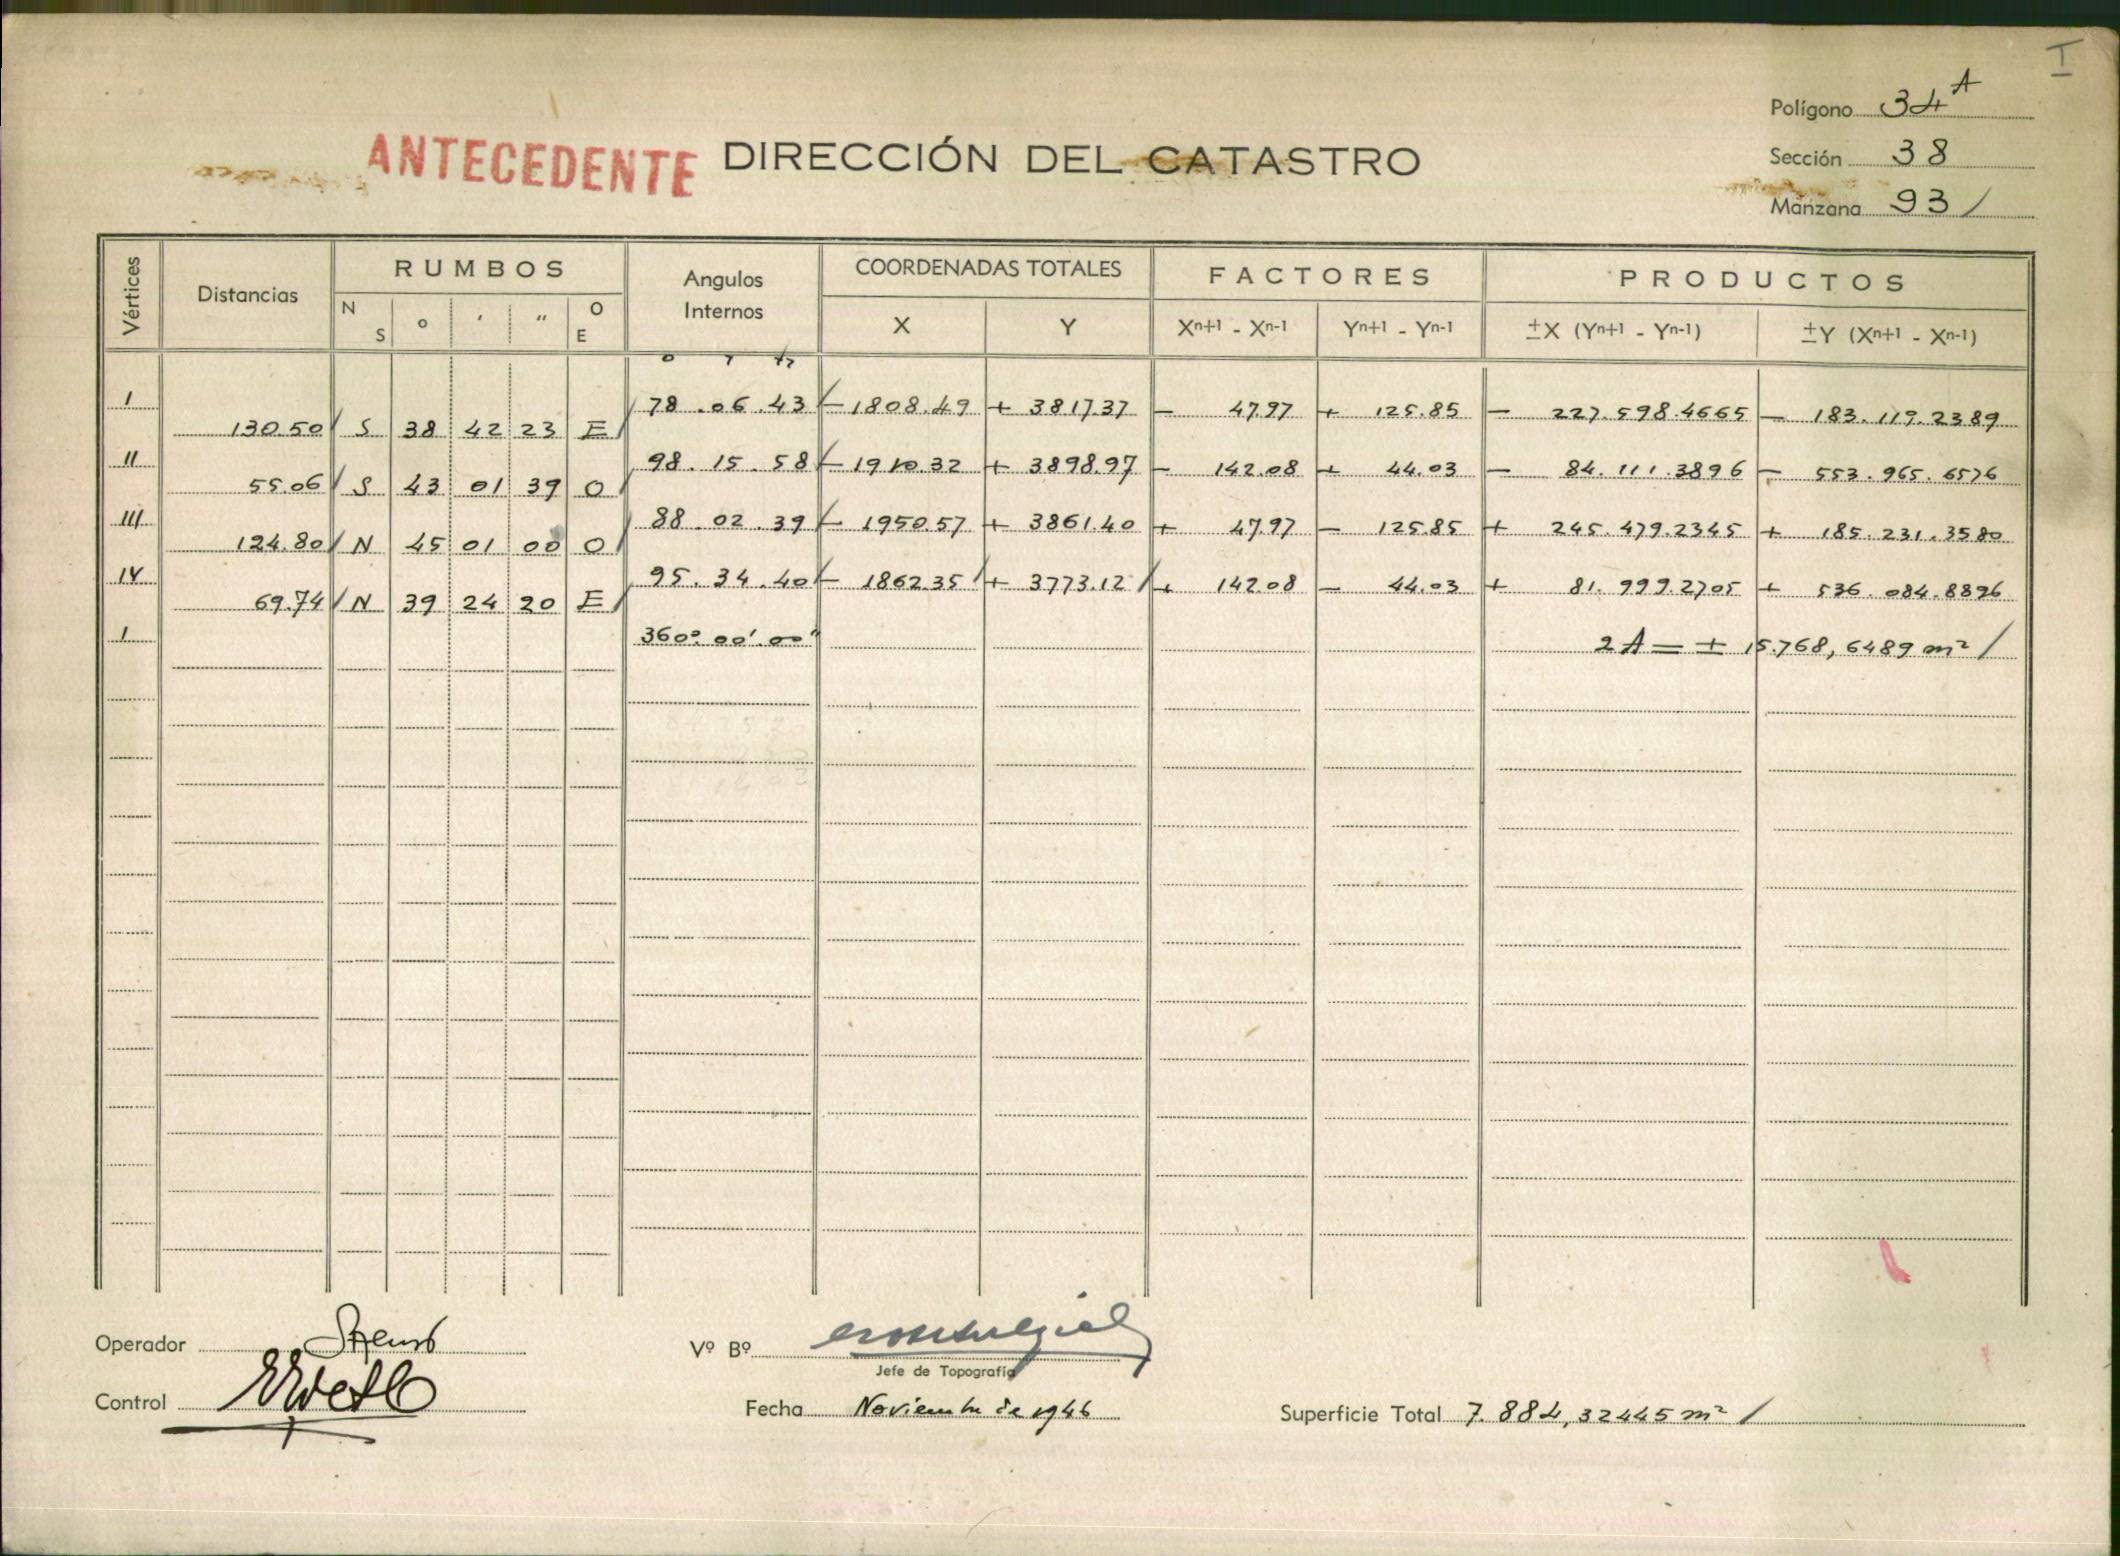 I
Polígono 34 A
ANTECEDENTE DIRECCIÓN DEL CATASTRO
Sección 38
Manzana 93 /
Vértices Distancias RUMBOS Angulos Internos COORDENADAS TOTALES FACTORES PRODUCTOS
N S o ′ ″ O E X Y Xn+1 - Xn-1 Yn+1 - Yn-1 ±X (Yn+1 - Yn-1) ±Y (Xn+1 - Xn-1)
o ′ ″
I 78.06.43 - 1808.49 + 3817.37 - 47.97 + 125.85 - 227.598.4665 - 183.119.2389
130.50 S 38 42 23 E
II 98.15.58 - 1910.32 + 3898.97 - 142.08 + 44.03 - 84.111.3896 - 553.965.6576
55.06 S 43 01 39 O
III 88.02.39 - 1950.57 + 3861.40 + 47.97 - 125.85 + 245.479.2345 + 185.231.3580
124.80 N 45 01 00 O
IV 95.34.40 - 1862.35 + 3773.12 + 142.08 - 44.03 + 81.999.2705 + 536.084.8896
69.74 N 39 24 20 E
I 360°.00'.00" 2A = ± 15.768,6489 m² /
Operador
Vº Bº
Jefe de Topografía
Control
Fecha Noviembre de 1946
Superficie Total 7.884,32445 m² /